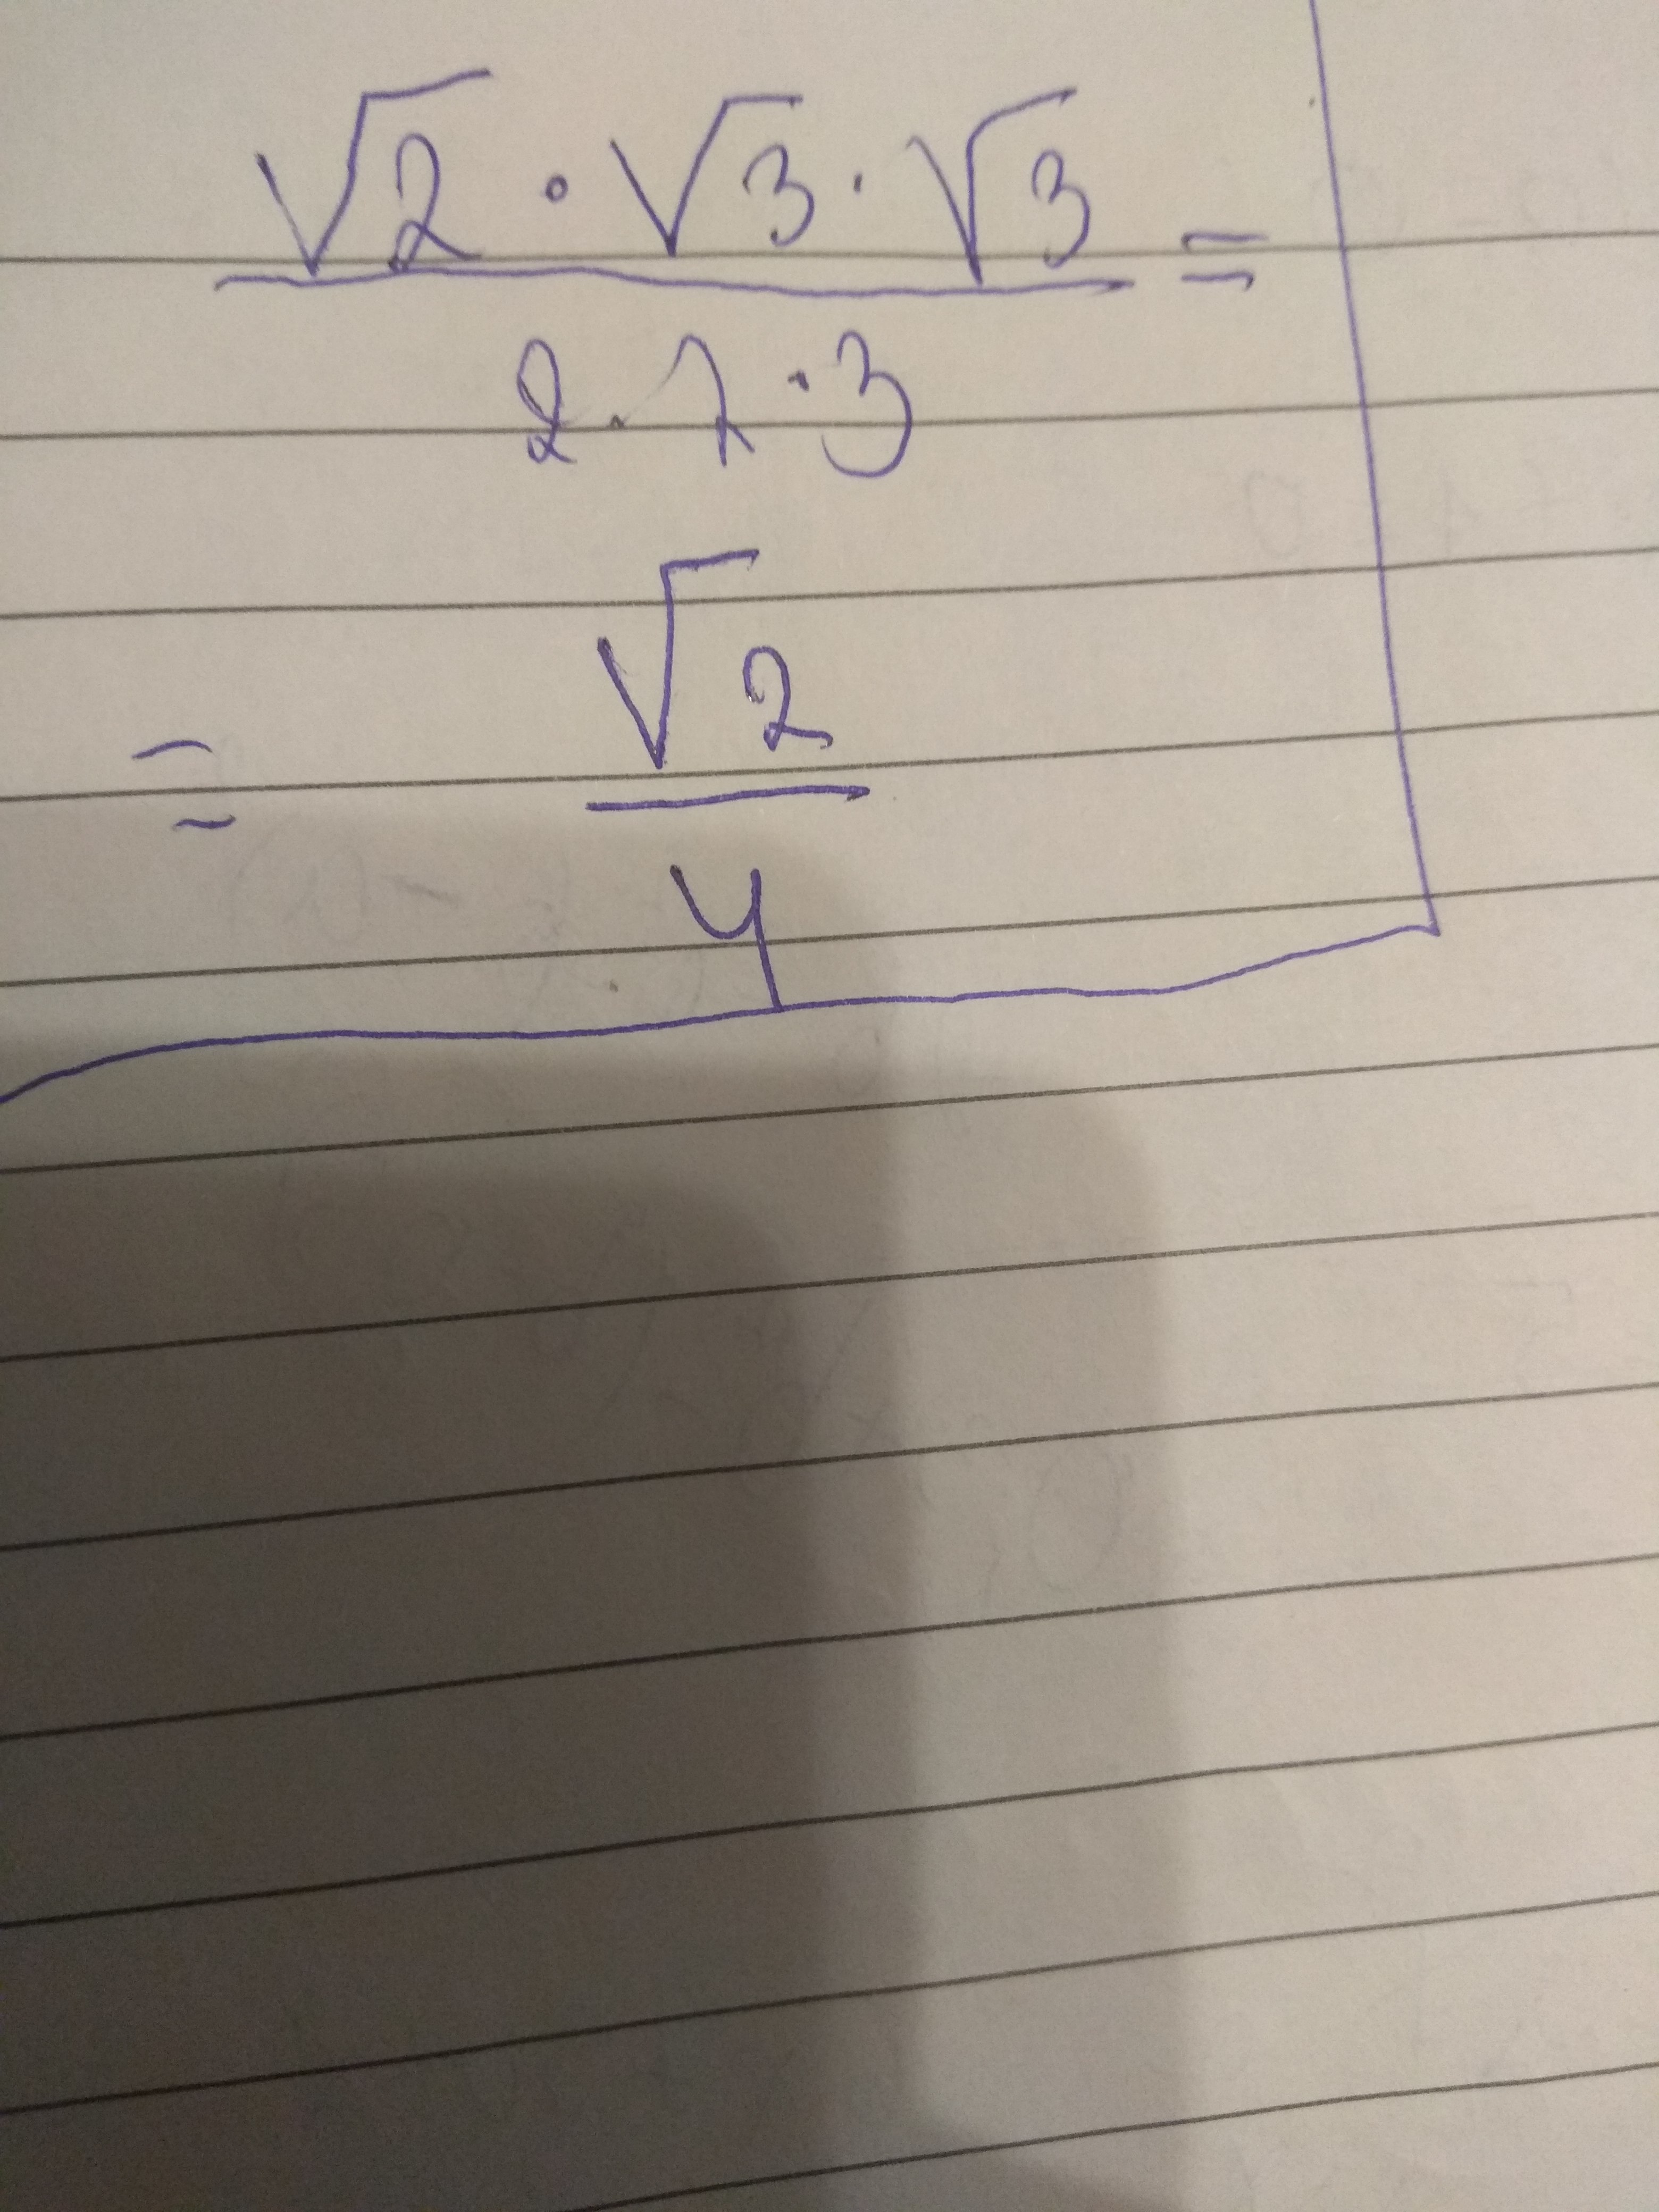 √2 · √3 · √3 =
2 · 2 · 3
= √2
4